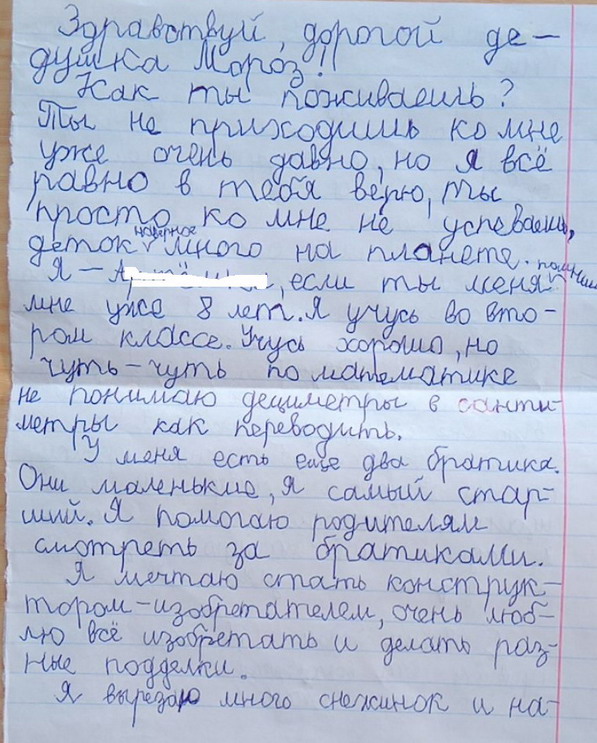 Здравствуй, дорогой де-
душка Мороз!!
Как ты поживаешь?
Ты не приходишь ко мне
уже очень давно, но я всё
равно в тебя верю, ты
просто ко мне не успеваешь,
деток наверное много на планете.
Я – , если ты меня помнишь
мне уже 8 лет. Я учусь во вто-
ром классе. Учусь хорошо, но
чуть-чуть по математике
не понимаю дециметры в санти-
метры как переводить.
У меня есть еще два братика.
Они маленькие, я самый стар-
ший. Я помогаю родителям
смотреть за братиками.
Я мечтаю стать конструк-
тором-изобретателем, очень люб-
лю всё изобретать и делать раз-
ные подделки.
Я вырезаю много снежинок и на-